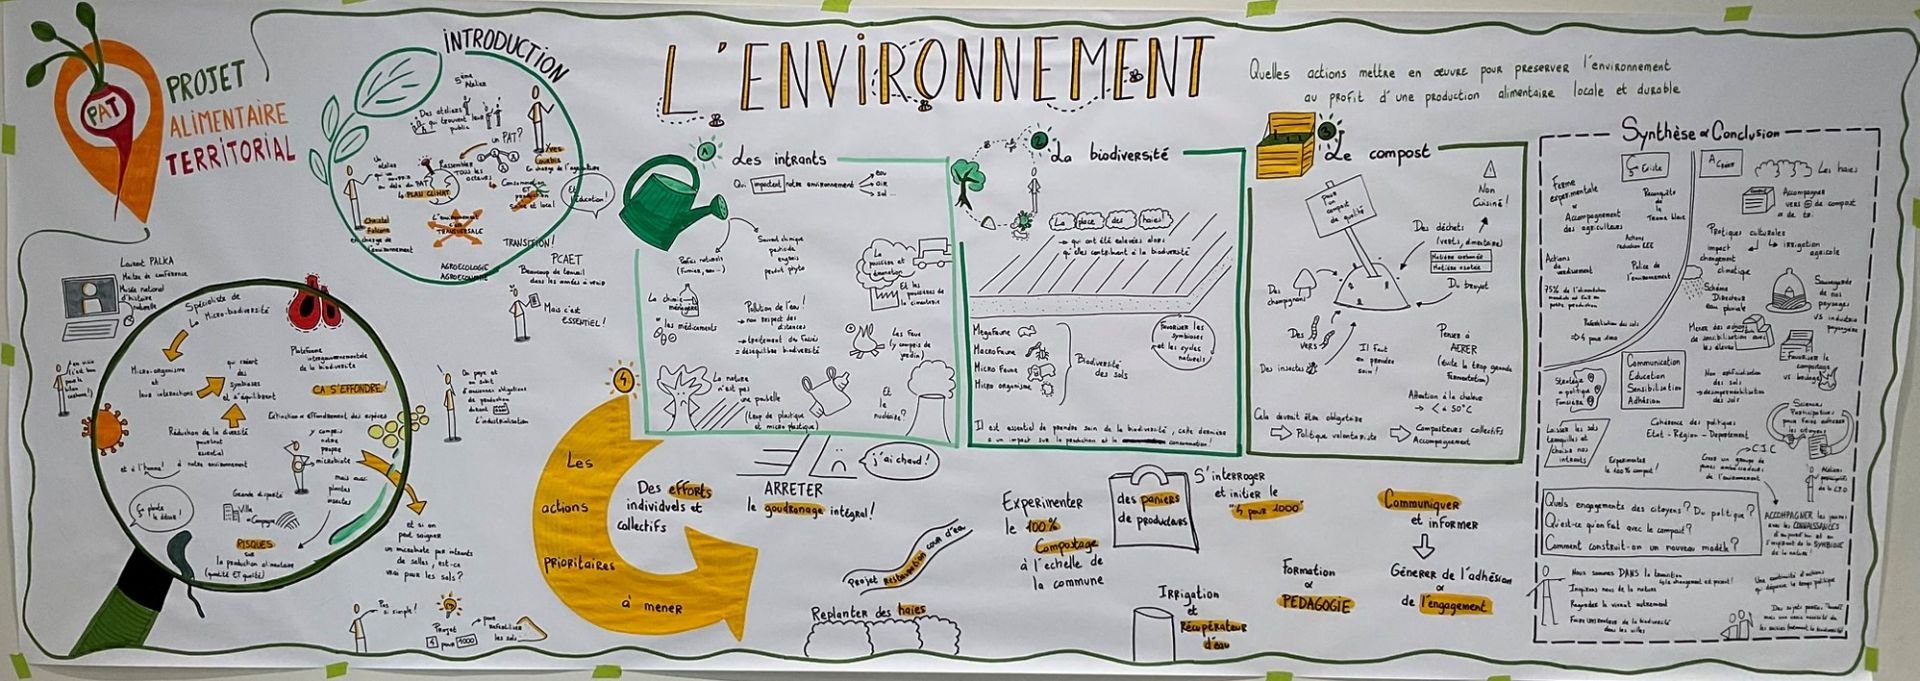 PAT
PROJET
ALIMENTAIRE
TERRITORIAL
INTRODUCTION
5ème
Atelier
Des ateliers
qui trouvent leur
public
un PAT?
Rassembler
TOUS les
acteurs
Yves
En charge de l'agriculture
Et
l'éducation!
Un
atelier
au delà du PAT
le PLAN CLIMAT
Consommation
et
production
saine et local
Christel
Falcone
en charge de
l'environnement
L'environnement
c'est
TRANSVERSALE
AGROECOLOGIE
TRANSITION!
PCAET
Beaucoup de travail
dans les années à venir
Mais c'est
ESSENTIEL!
Laurent PALKA
Maître de conférence
Musée national
d'histoire
naturelle
Spécialiste de
La Micro-biodiversité
Micro-organisme
et
leurs interactions
qui créent
des
symbioses
et s'équilibrent
Réduction de la diversité
pourtant
essentiel
à notre environnement
et à l'homme!
Plateforme
intergouvernementale
de la biodiversité
CA S'EFFONDRE!
Extinction et effondrement des espèces
y compris
notre
propre
microbiote
mais aussi
plantes
insectes
Grande disparité
Ville
Campagne
RISQUES
sur
la production alimentaire
(quantité ET qualité)
On paye et
on subit
d'anciennes obligations
de production
datant
de
L'industrialisation
et si on
peut soigner
un microbiote par intrants
de selles, est-ce
vrai pour les sols?
Pas
si simple!
Projet
4 pour 1000
pour
refertiliser
les sols
L'ENVIRONNEMENT
Quelles actions mettre en œuvre pour preserver l'environnement
au profit d'une production alimentaire locale et durable
1
Les intrants
Qui impactent notre environnement
eau
air
sol...
Pas/ou naturels
(Fumier, eau...)
Souvent chimique
pesticide
engrais
produit phyto
La chimie
ménagère
et les médicaments
Pollution de l'eau!
→ non respect des
distances
→ traitement du fossés
= déséquilibre biodiversité
La poussière et
émanation
Et les
poussières de
la cimenterie
Les Feux
(y compris de
jardin)
La nature
n'est pas
une poubelle
(Trop de plastique
et micro plastique)
Et
le
nucléaire?
2
La biodiversité
La place des haies!
→ qui ont été enlevées alors
qu'elles contribuent à la biodiversité
MegaFaune
MacroFaune
Micro Faune
Micro organisme
Biodiversité
des sols
Favoriser les
symbioses
et les cycles
naturels
Il est essentiel de prendre soin de la biodiversité, cette dernière
a un impact sur la production et la consommation!
3
Le compost
pour
un compost
de qualité
Non
Cuisiné!
Des déchets
(verts, alimentaire)
Matière carbonée
Matière azotée
Du broyat
Des
champignons
Des
vers
Des insectes
Il faut
en prendre
soin!
Penser à
AERER
(évite la trop grande
fermentation)
Attention à la chaleur
→ < à 50°C
Cela devrait être obligatoire
Politique volontariste
Composteurs collectifs
Accompagnement
4
Les
actions
prioritaires
à mener
Des efforts
individuels et
collectifs
ARRETER
le goudronage intégral!
j'ai chaud!
Projet restauration cour d'eau
Replanter des haies
Experimenter
le 100%
Compostage
à l'échelle de
la commune
des paniers
de producteurs
S'interroger
et initier le
"4 pour 1000"
Irrigation
et
Récupérateur
d'eau
Formation
&
PEDAGOGIE
Communiquer
et informer
Génerer de l'adhésion
&
de l'engagement
Synthèse & Conclusion
Existe
A Créer
Les haies
Ferme
experimentale
&
Accompagnement
des agriculteurs
Reconquête
de
la
Trame bleue
Accompagner
vers + de compost
Actions
Police de
l'environnement
Pratiques culturales
impact
changement
climatique
irrigation
agricole
Schéma
Directeur
eau pluviale
Sauvegarde
de nos
paysages
VS industrie
Refertilisation des sols
→ 4 pour 1000
de sensibilisation avec
les élèves
Communication
Education
Sensibilisation
Adhésion
Favoriser le
compostage
Stratégie
& politique
Foncière
Non artificialisation
des sols
→ desimperméabilisation
des sols
Sciences
Participatives
pour faire adhérer
les citoyens
Laisser les sols
tranquilles et
choisir nos
intrants
Cohérence des politiques
Etat - Région - Département
Experimenter
le 100% compost!
C.J.C
Créer un groupe de
jeunes ambassadeurs
de l'environnement
Quels engagements des citoyens? Du politique?
Qu'est-ce qu'on fait avec le compost?
Comment construit-on un nouveau modèle?
ACCOMPAGNER les jeunes
avec les CONNAISSANCES
d'aujourd'hui et en
s'inspirant de la SYMBIOSE
de la nature!
Nous sommes DANS la transition
le changement est présent!
Inspirons nous de la nature
Regardez le vivant autrement
Faire une place de la biodiversité
dans les villes
Une continuité d'actions
qui dépasse le temps politique